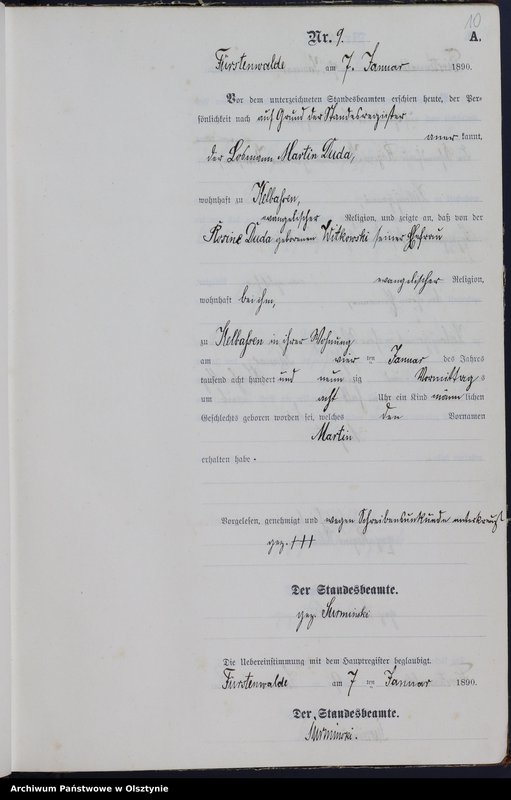 10
Nr. 9.
A.
Fürstenwalde am 7. Januar 1890.
Vor dem unterzeichneten Standesbeamten erschien heute, der Per-
sönlichkeit nach auf Grund der Standesregister
aner kannt,
der Losmann Martin Duda,
wohnhaft zu Kelbassen,
evangelischer Religion, und zeigte an, daß von der
Rosine Duda geborenen Witkowski seiner Ehefrau
evangelischer Religion,
wohnhaft bei ihm,
zu Kelbassen in ihrer Wohnung
am vier ten Januar des Jahres
tausend acht hundert und neun zig Vormittag s
um acht Uhr ein Kind männ lichen
Geschlechts geboren worden sei, welches den Vornamen
Martin
erhalten habe.
Vorgelesen, genehmigt und wegen Schreibensunkunde unterkreuzt
gez. +++
Der Standesbeamte.
gez. Surminski
Die Uebereinstimmung mit dem Hauptregister beglaubigt.
Fürstenwalde am 7 ten Januar 1890.
Der Standesbeamte.
Surminski.
Archiwum Państwowe w Olsztynie